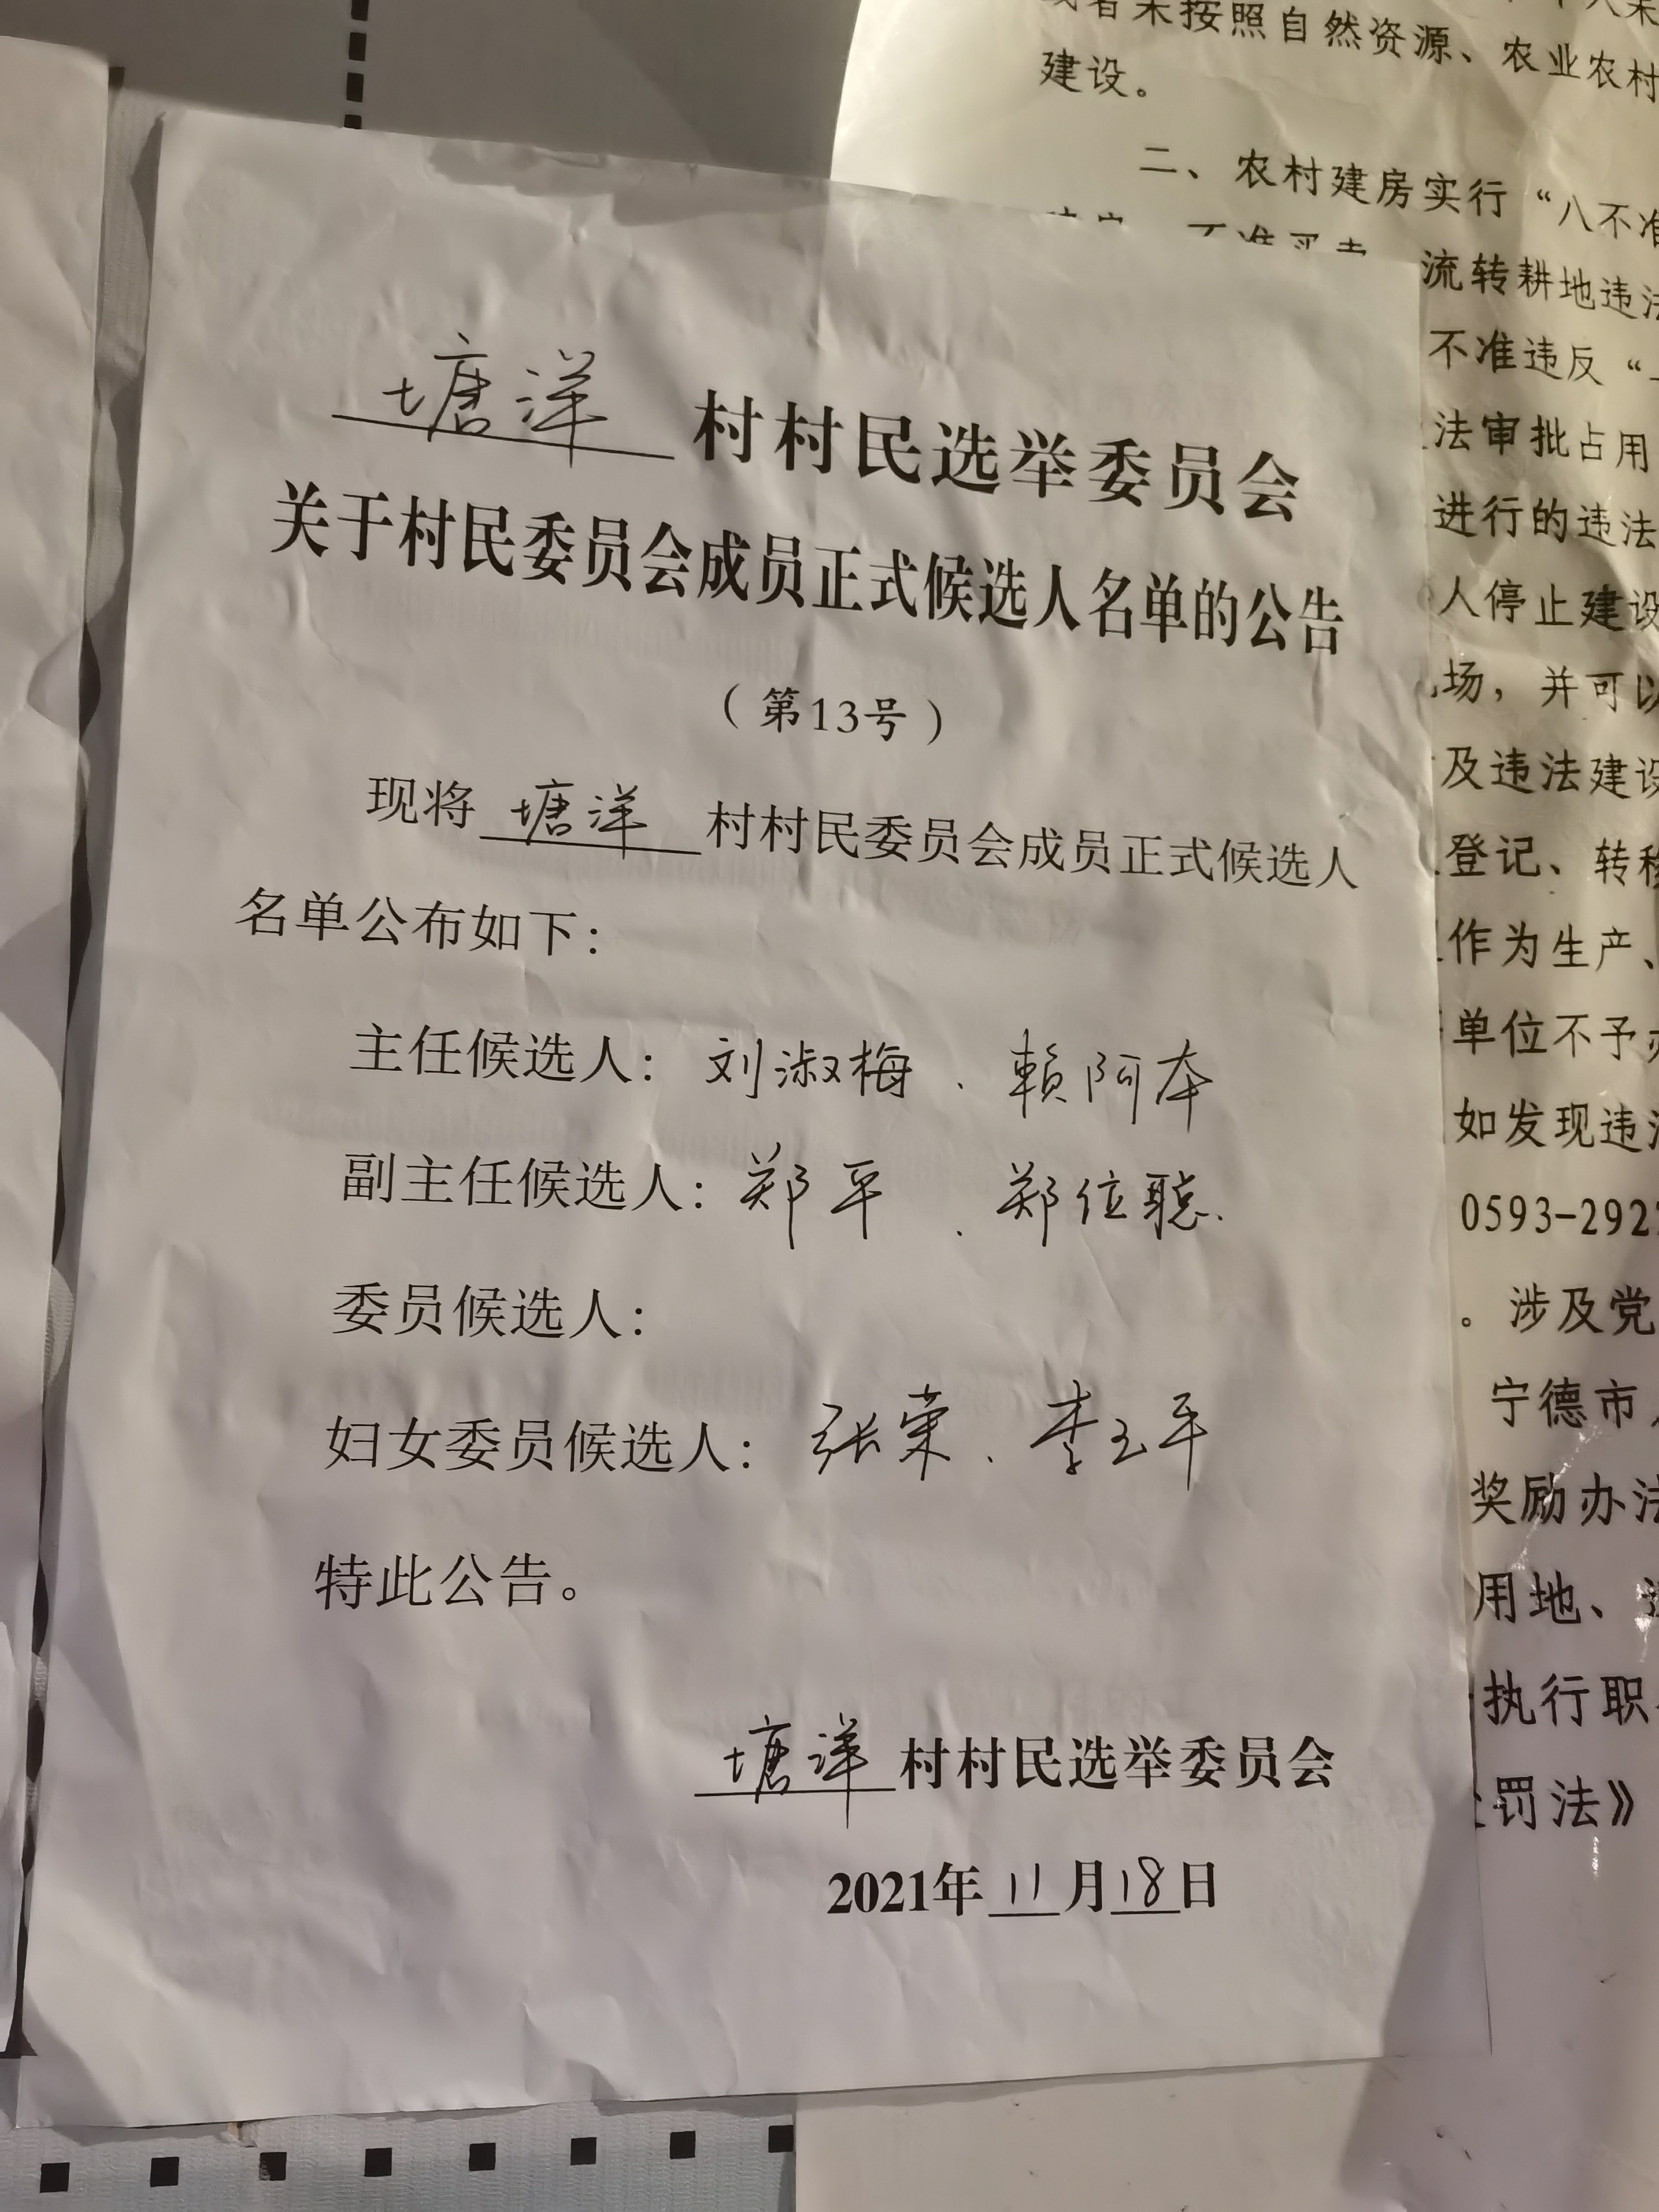 塘洋村村民选举委员会
关于村民委员会成员正式候选人名单的公告
（第13号）
现将塘洋村村民委员会成员正式候选人
名单公布如下：
主任候选人：刘淑梅、賴阿本
副主任候选人：郑平、郑位聪、
委员候选人：
妇女委员候选人：张荣、李玉平
特此公告。
塘洋村村民选举委员会
2021年11月18日
者未按照自然资源、农业农村
建设。
二、农村建房实行“八不准
不准买卖
流转耕地违法
不准违反“一
法审批占用
进行的违法
人停止建设
场，并可以
及违法建设
登记、转移
作为生产、
单位不予办
如发现违法
0593-292
。涉及党
宁德市
奖励办法
用地、
执行职
罚法》